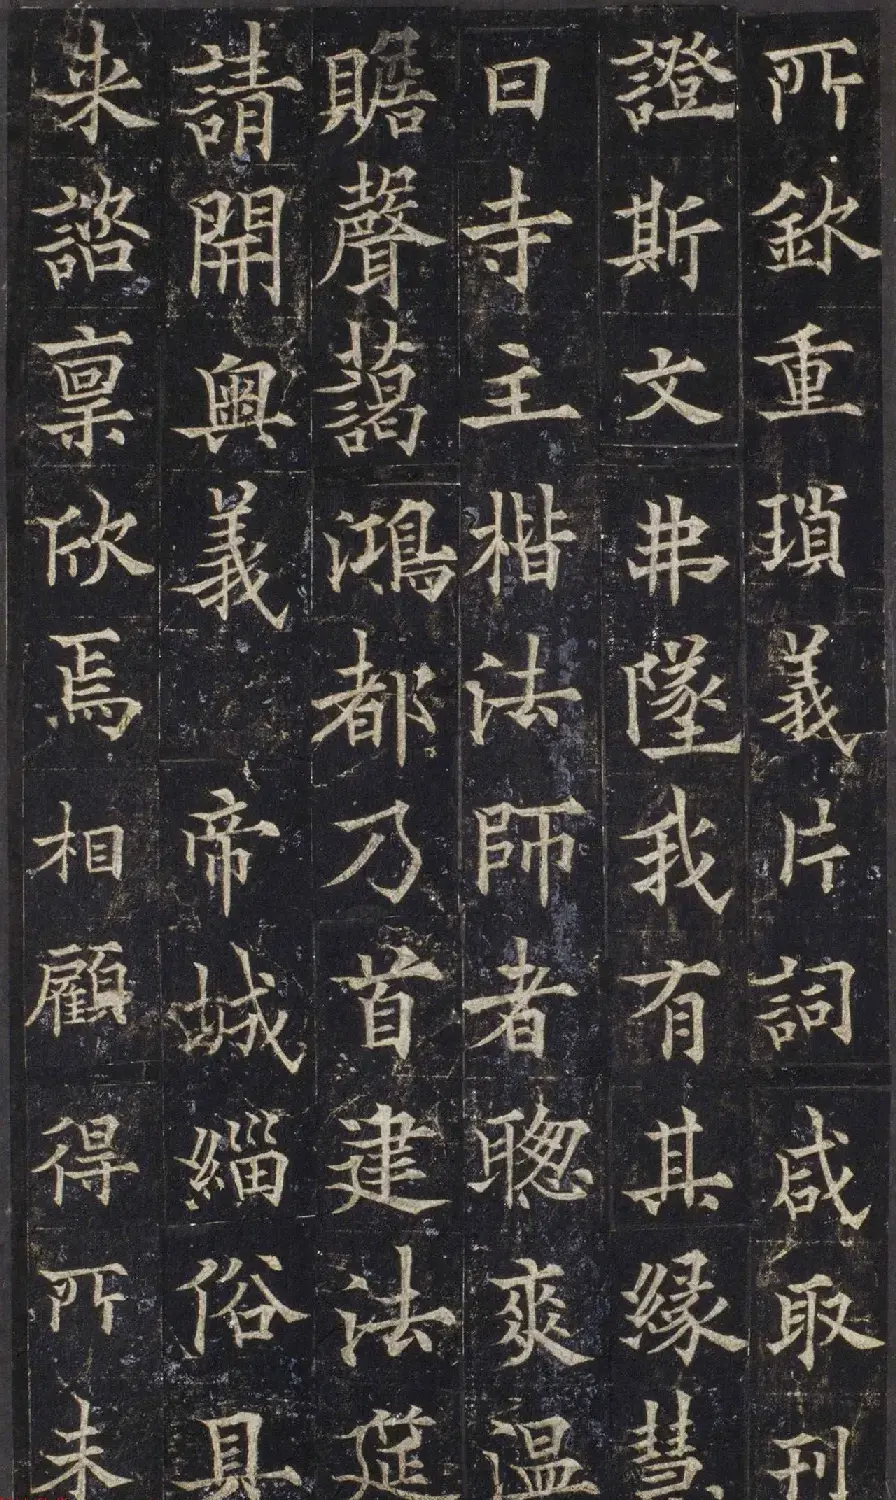 所欽重瑣義片詞咸取刊
證斯文弗墜我有其緣慧
日寺主楷法師者聰爽温
贍聲藹鴻都乃首建法筵
請開奥義 帝城緇俗具
来諮稟欣焉相顧得所未